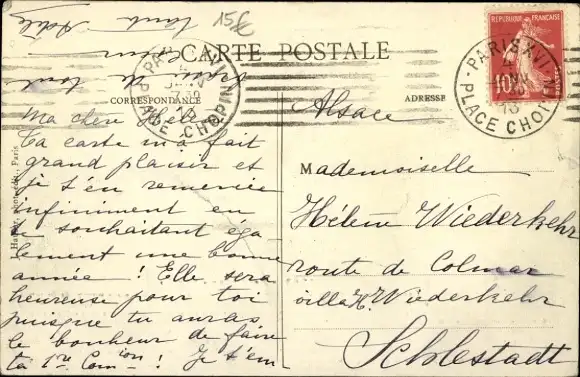 158
CARTE POSTALE
CORRESPONDANCE
ADRESSE
REPUBLIQUE FRANÇAISE
10
POSTES
PARIS XVI
PLACE CHOPIN
PLACE CHOPIN
Ma chère Hélène
Ta carte m'a fait
grand plaisir et
je t'en remercie
infiniment en
te souhaitant éga
lement une bonne
année ! Elle sera
heureuse pour toi
puisque tu auras
le bonheur de faire
ta 1re Comion ! Je t'em
de tout
cœur
tante
Alsace
Mademoiselle
Hélène Wiederkehr
route de Colmar
villa K. Wiederkehr
Schlestadt
Paris